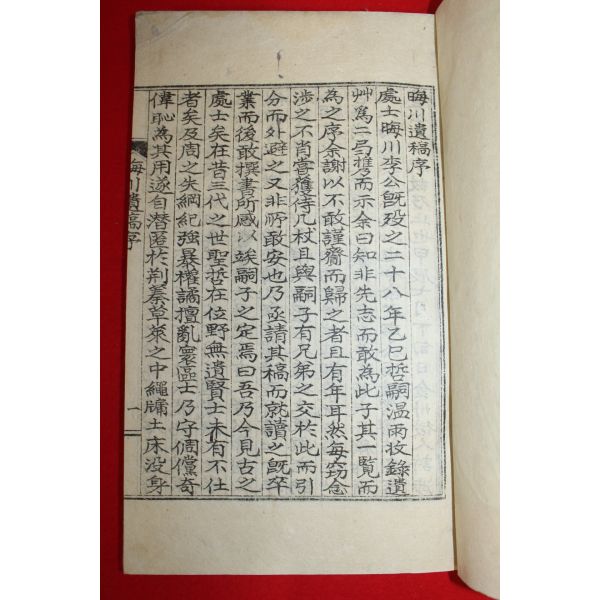 晦川遺稿序
處士晦川李公旣歿之二十八年乙巳哲嗣温雨收錄遺
艸爲二局携而示余曰知非先志而敢為此子其一覧而
為之序余謝以不敢謹齋而歸之者且有年耳然每窃念
涉之不肖嘗獲侍几杖且與嗣子有兄弟之交於此而引
分而外避之又非所敢安也乃亟請其稿而就讀之旣卒
業而後敢撰書所感以竢嗣子之定焉曰吾乃今見古之
處士矣在昔三代之世聖哲在位野無遺賢士未有不仕
者矣及周之失綱紀強暴權譎擅亂寰區士乃守倜儻奇
偉恥為其用遂自潛匿於荆蓁草萊之中繩牖土床没身
晦川遺稿序
一